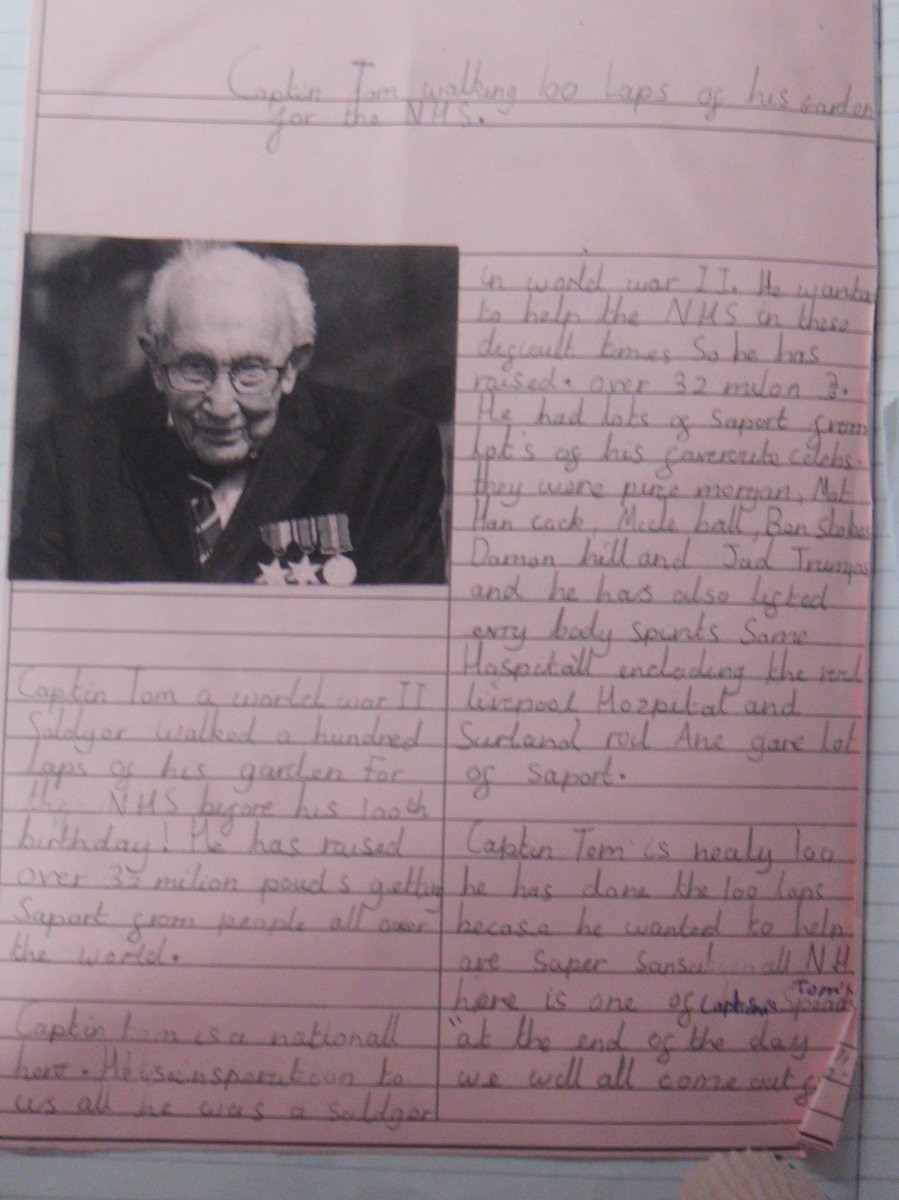 Captin Tom walking 100 laps of his garden
for the NHS.
Captin Tom a world war II
Soldger walked a hundred
laps of his garden for
the NHS before his 100th
birthday! He has raised
over 33 milion pouds getting
Saport from people all over
the world.
Captin tom is a nationall
hero. He is
us all he was a soldger
in world war II. He wants
to help the NHS in these
deficult times So he has
raised. over 32 milon
He had lots of Saport from
lot's of his favercute celebs.
they were morgan, Mat
Han cock, ball, Ben stokes
Damon hill and Jud
and he has also lifted
evry body spirits Some
Hospitall encloding the
liverpool Hozpital and
gave lot
of saport.
Captin Tom is nealy 100
he has done the 100 laps
becase he wanted to help
are saper NH
here is one of Captins Tom's
"at the end of the day
we will all come out